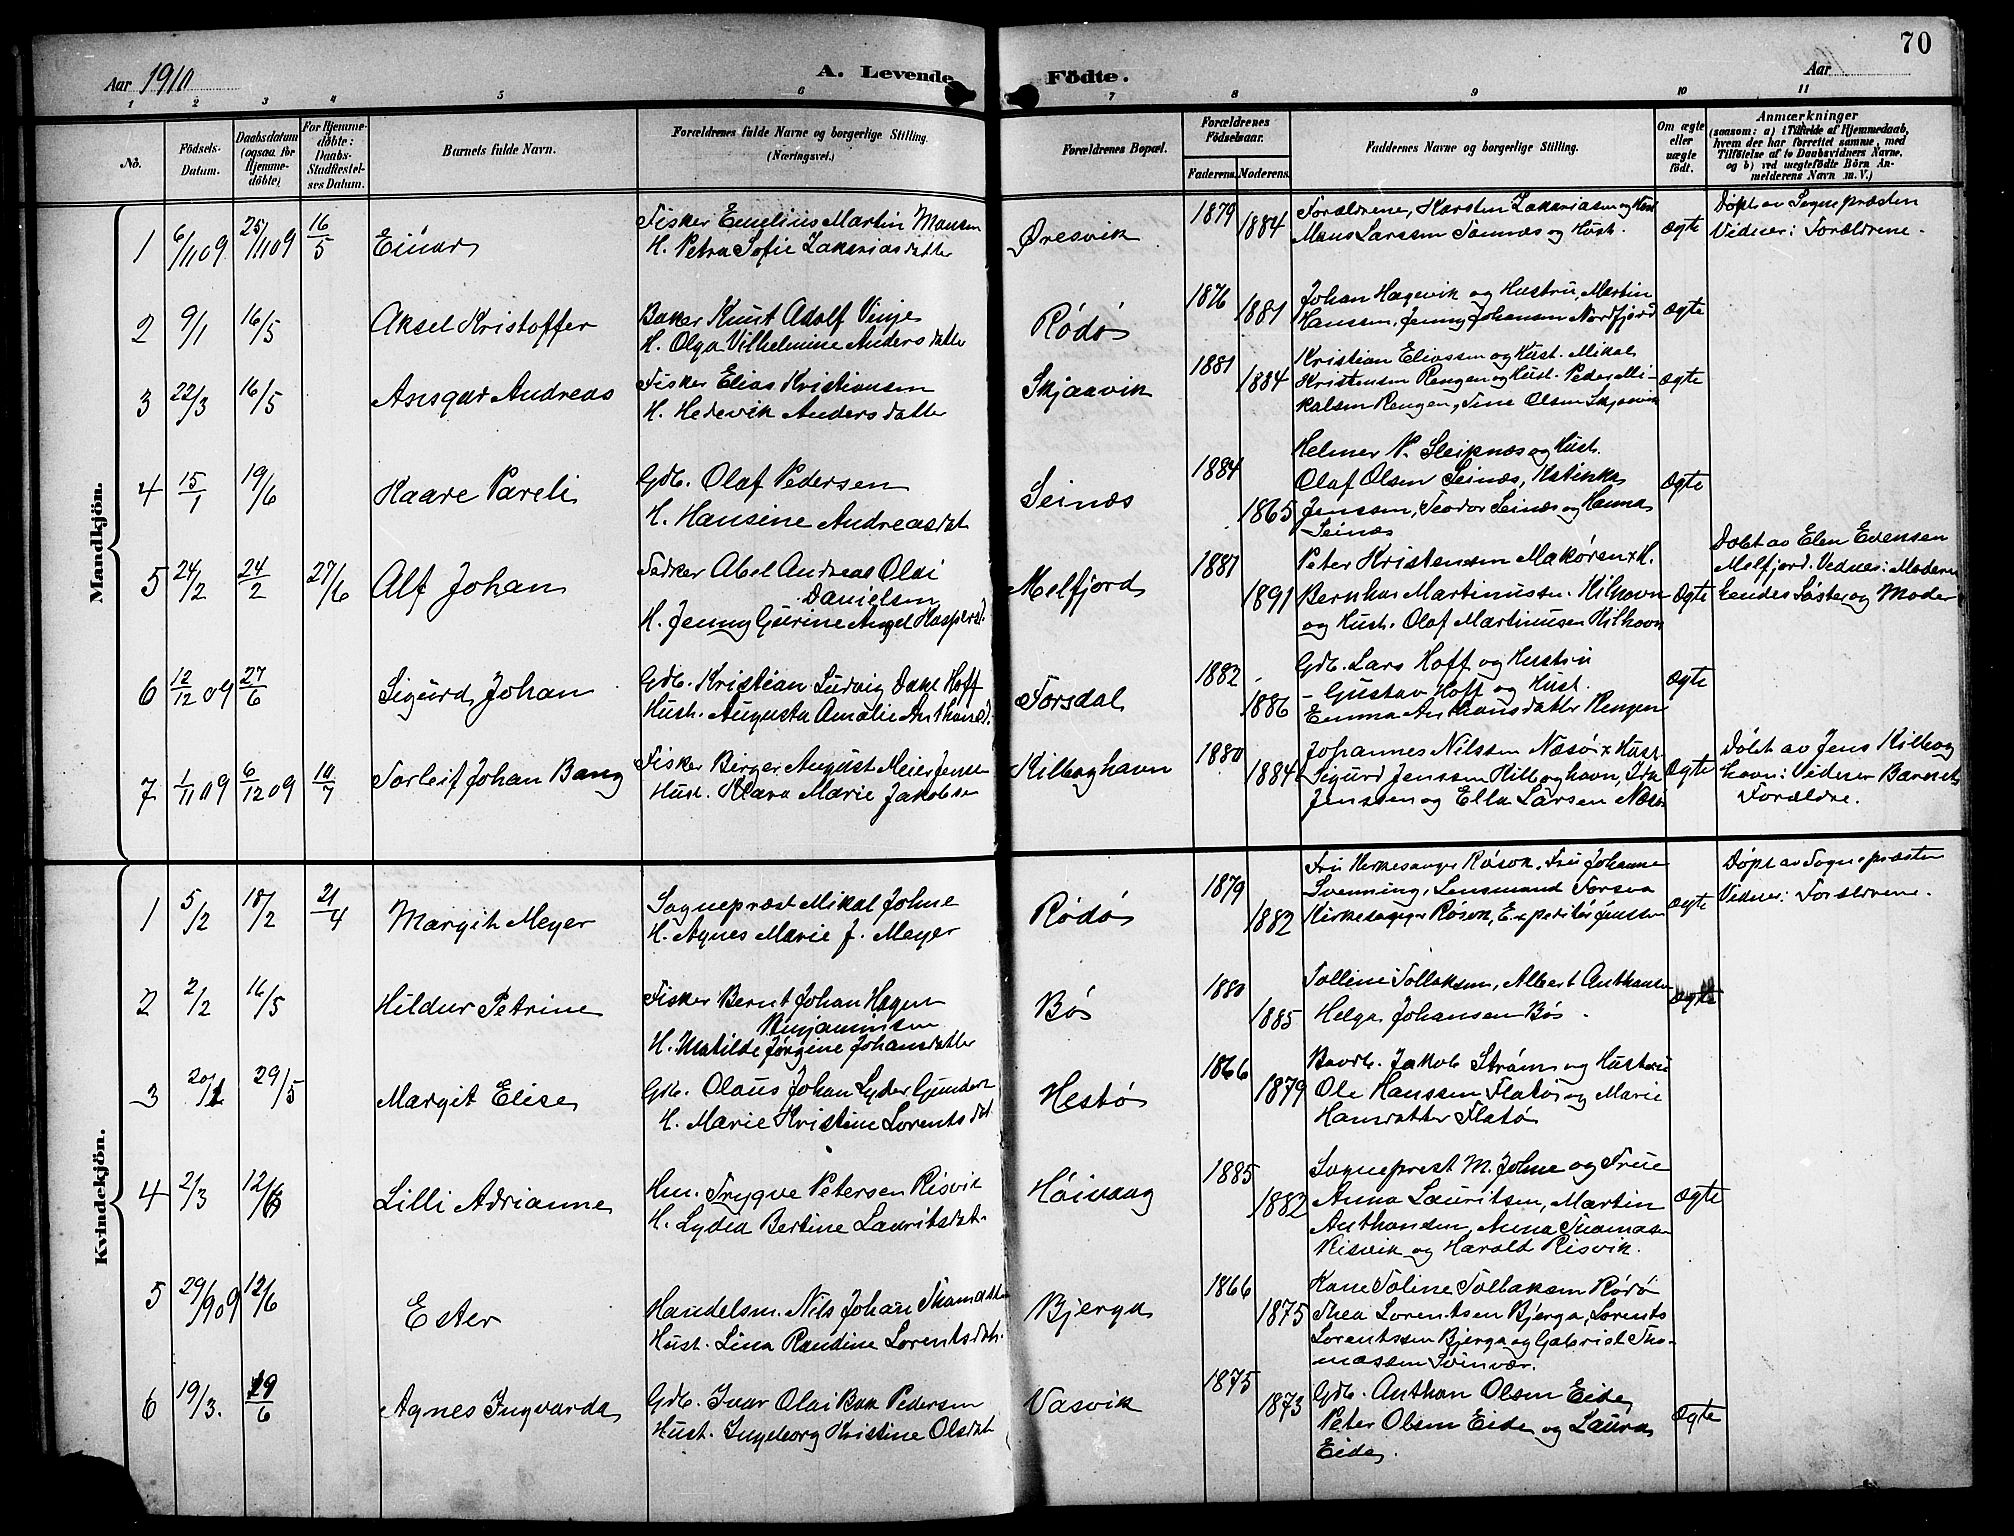 70
Aar 1910
A. Levende Födte.
Aar
1 2 3 4 5 6 7 8 9 10 11
No. Födsels-Datum. Daabsdatum (ogsaa for Hjemmedöbte) For Hjemmedöbte: Daabs-Stadfæstelses Datum. Barnets fulde Navn. Forældrenes fulde Navne og borgerlige Stilling. (Næringsvei.) Forældrenes Bopæl. Forældrenes Födselsaar. Faderens. Moderens. Faddernes Navne og borgerlige Stilling. Om ægte eller uægte födt. Anmærkninger (saasom: a) i Tilfælde af Hjemmedaab, hvem der har forrettet samme, med Tilföielse af to Daabsvidners Navne, og b) ved uægtefödte Börn Anmelderens Navn m. V.)
Mandkjön.
1 6/11 09 25/11 09 16/5 Einar
Fisker Emelius Martin Monsen
H. Petra Sofie Zakariasdatter
Øresvik 1879 1884
Forældrene, Karsten Zakariasen og Hust
Mons Larssen Sannæs og Hust.
ægte
Døpt av Sognepræsten
Vidner: Forældrene.
2 9/1 16/5 Aksel Kristoffer
Baker Knut Adolf Vinje
H. Olga Vilhelmine Andersdatter
Rødø 1876 1881
Johan Hagevik og Hustru, Martin
Hanssen, Jenny Johansen Nordfjord
ægte
3 22/3 16/5 Ansgar Andreas
Fisker Elias Kristiansen
H. Hedevik Andersdatter
Skjaavik 1881 1884
Kristian Eliassen og Hust. Mikal
Kristensen Rengen og Hust. Peder Mi-
kalsen Rengen, Tine Olsen Skjaavik
ægte
4 15/1 19/6 Kaare Pareli
Gdb. Olaf Pedersen
H. Hansine Andreasdat
Seinæs 1884 1865
Helmer N. Sleipnæs og Hust.
Olaf Olsen Seinæs, Katinka
Jenssen, Teodor Seinæs og Hanna
Seinæs
ægte
5 24/2 24/2 27/6 Alf Johan
Fisker Abel Andreas Olai
Danielsen
H. Jenny Gurine Angel Kaspersd.
Melfjord 1887 1891
Peter Kristensen Makøren x H.
Bernhar Martinussen Kilhavn
og Hust. Olaf Martinusen Kilhavn
ægte
Døbt av Elen Evensen
Melfjord. Vidner: Moderen
hendes Søster og Moder
6 12/12 09 27/6 Sigurd Johan
Gdb. Kristian Ludvig Dahl Hoff
Hust. Augusta Amalie Anthonsd.
Forsdal 1882 1886
Gdb. Lars Hoff og Hustru
- Gustav Hoff og Hust.
Emma Anthonsdatter Rengen
ægte
7 1/11 09 6/12 09 10/7 Torleif Johan Bang
Fisker Birger August Meier Jensen
Hust. Mara Marie Jakobsen
Kilboghavn 1880 1884
Johannes Nilssen Næsøi x Hust
Sigurd Jenssen Kilboghavn, Ida
Jenssen og Ella Larsen Næsøi
ægte
Døbt av Jens Kilbog
havn: Vidner Barnets
Forældre.
Kvindekjön.
1 5/2 18/2 21/4 Margit Meyer
Sogneprest Mikal Johne
H. Agnes Marie f. Meyer
Rødø 1879 1882
Fru Kirkesanger Røsok, Fru Johanne
Svenning, Lensmand Forsva
Kirkesanger Røsok, Expeditør Jenssen
ægte
Døpt av Sognepræsten
Vidner: Forældrene.
2 2/2 16/5 Hildur Petrine
Fisker Bernt Johan Hagen
Benjaminsen
H. Matilde Jørgine Johansdatter
Bø 1880 1885
Tolline Tollaksen, Albert Anthonsen
Helga Johansen Bø.
ægte
3 20/1 29/5 Margit Elise
Gdb. Olaus Johan Lyder Gunders
H. Marie Kristine Lorentsdat
Hestø 1866 1879
Baadb. Jakob Strøm og Hustru
Ole Hanssen Flatø og Marie
Hansdatter Flatø
4 2/3 12/6 Lilli Adrianne
Hm. Trygve Petersen Risvik
H. Lydia Bertine Lauritsdat.
Høivaag 1885 1882
Sogneprest M. Johne og Frue
Anna Lauritsen, Martin
Anthonsen, Anna Tuomasen
Risvik og Harald Risvik.
ægte
5 29/9 09 12/6 Ester
Handelsm. Nils Johan Thomassen
Hust. Lina Randine Lorentsdat.
Bjerga 1866 1875
Kone Toline Tollaksen Rødø
Thea Lorentsen Bjerga, Lorents
Lorentssen Bjerga og Gabriel Tho-
massen Svinvær.
6 19/3. 19/6 Agnes Ingvarda
Gdb. Ivar Olai Bak Pedersen
Hust. Ingeborg Kristine Olsdat
Vasvik 1875 1873
Gdb. Anthon Olsen Eide
Peter Olsen Eide og Laura
Eide.
ægte